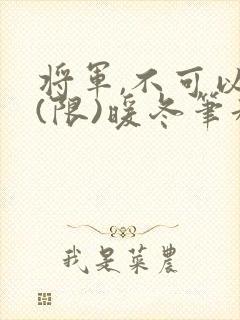 將軍,不可以
(限)暖冬筆
我是菜農